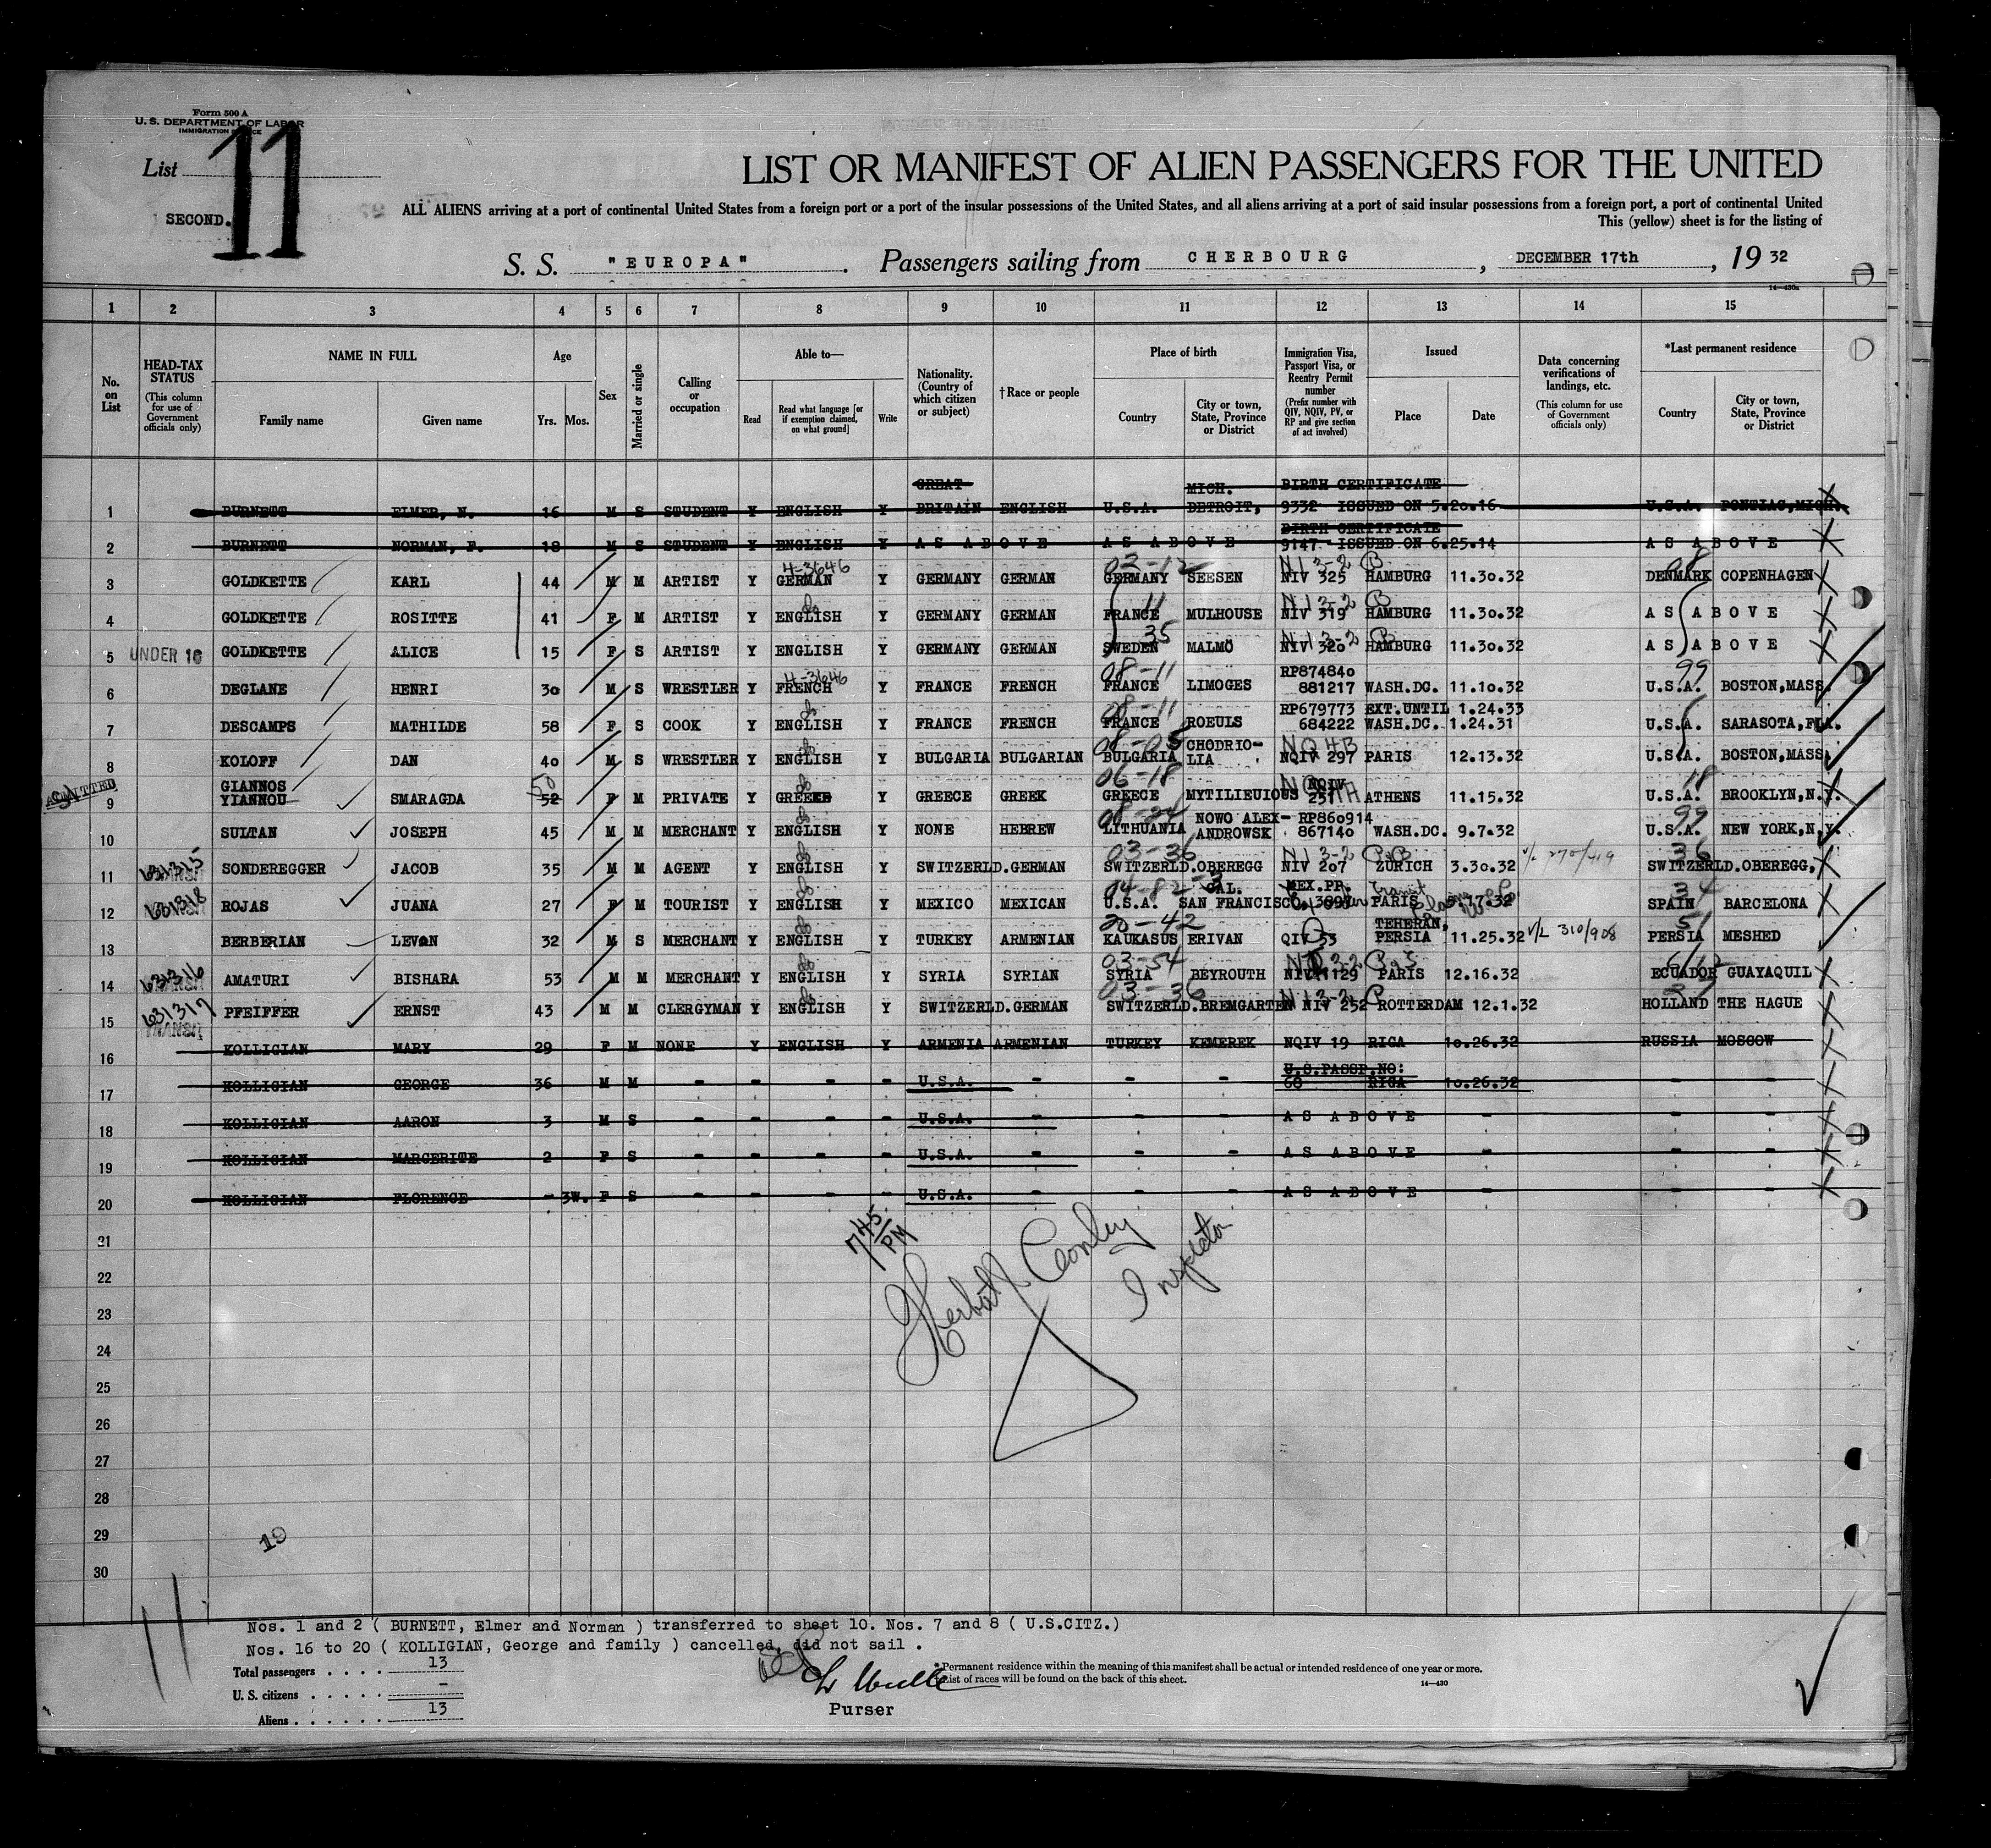 Form 500 A
U. S. DEPARTMENT OF LABOR
IMMIGRATION
List 11
SECOND.
LIST OR MANIFEST OF ALIEN PASSENGERS FOR THE UNITED
ALL ALIENS arriving at a port of continental United States from a foreign port or a port of the insular possessions of the United States, and all aliens arriving at a port of said insular possessions from a foreign port, a port of continental United
This (yellow) sheet is for the listing of
S. S. "EUROPA". Passengers sailing from CHERBOURG, DECEMBER 17th, 19 32
14—430a
1 2 3 4 5 6 7 8 9 10 11 12 13 14 15
No. on List
HEAD-TAX STATUS (This column for use of Government officials only)
NAME IN FULL Family name Given name
Age Yrs. Mos.
Sex
Married or single
Calling or occupation
Able to— Read Read what language [or if exemption claimed, on what ground] Write
Nationality. (Country of which citizen or subject)
†Race or people
Place of birth Country City or town, State, Province or District
Immigration Visa, Passport Visa, or Reentry Permit number (Prefix number with QIV, NQIV, PV, or RP and give section of act involved)
Issued Place Date
Data concerning verifications of landings, etc. (This column for use of Government officials only)
*Last permanent residence Country City or town, State, Province or District
1 BURNETT ELMER, N. 16 M S STUDENT Y ENGLISH Y GREAT BRITAIN ENGLISH U.S.A. MICH. DETROIT, BIRTH CERTIFICATE 9332 ISSUED ON 5.20.16 U.S.A. PONTIAC, MICH.
2 BURNETT NORMAN, F. 18 M S STUDENT Y ENGLISH Y AS ABOVE AS ABOVE BIRTH CERTIFICATE 9147 - ISSUED ON 6.25.14 AS ABOVE
3 GOLDKETTE KARL 44 M M ARTIST Y 4-3646 GERMAN Y GERMANY GERMAN 02-12 GERMANY SEESEN NIV 325 HAMBURG 11.30.32 08 DENMARK COPENHAGEN
4 GOLDKETTE ROSITTE 41 F M ARTIST Y ENGLISH Y GERMANY GERMAN 11 FRANCE MULHOUSE NIV 319 HAMBURG 11.30.32 AS ABOVE
5 UNDER 16 GOLDKETTE ALICE 15 F S ARTIST Y ENGLISH Y GERMANY GERMAN 35 SWEDEN MALMÖ NIV 320 HAMBURG 11.30.32 AS ABOVE
6 DEGLANE HENRI 30 M S WRESTLER Y 4-3646 FRENCH Y FRANCE FRENCH 08-11 FRANCE LIMOGES RP874840 881217 WASH.DC. 11.10.32 99 U.S.A. BOSTON,MASS.
7 DESCAMPS MATHILDE 58 F S COOK Y ENGLISH Y FRANCE FRENCH 08-11 FRANCE ROEULS RP679773 EXT.UNTIL 1.24.33 684222 WASH.DC. 1.24.31 U.S.A. SARASOTA,FLA.
8 KOLOFF DAN 40 M S WRESTLER Y ENGLISH Y BULGARIA BULGARIAN 08-05 BULGARIA CHODRIO-LIA NQIV 297 PARIS 12.13.32 U.S.A. BOSTON,MASS.
ADMITTED 9 GIANNOS YIANNOU SMARAGDA 50 52 F M PRIVATE Y GREEK Y GREECE GREEK 06-18 GREECE MYTILIEUIOUS NQIV 251 ATHENS 11.15.32 18 U.S.A. BROOKLYN,N.Y.
10 SULTAN JOSEPH 45 M M MERCHANT Y ENGLISH Y NONE HEBREW 08-24 LITHUANIA NOWO ALEX-ANDROWSK RP860914 867140 WASH.DC. 9.7.32 99 U.S.A. NEW YORK,N.Y.
11 631315 SONDEREGGER JACOB 35 M M AGENT Y ENGLISH Y SWITZERLD. GERMAN 03-36 SWITZERLD. OBEREGG NIV 207 ZÜRICH 3.30.32 V/L 270/419 36 SWITZERLD. OBEREGG,
12 631318 ROJAS JUANA 27 F M TOURIST Y ENGLISH Y MEXICO MEXICAN 04-82 U.S.A. CAL. SAN FRANCISCO, MEX.PP. 3897 PARIS 34 SPAIN BARCELONA
13 BERBERIAN LEVON 32 M S MERCHANT Y ENGLISH Y TURKEY ARMENIAN 20-42 KAUKASUS ERIVAN QIV 53 TEHERAN, PERSIA 11.25.32 V/L 310/908 51 PERSIA MESHED
14 631316 AMATURI BISHARA 53 M M MERCHANT Y ENGLISH Y SYRIA SYRIAN 03-54 SYRIA BEYROUTH NIV 1129 PARIS 12.16.32 ECUADOR GUAYAQUIL
15 631317 TRANSIT PFEIFFER ERNST 43 M M CLERGYMAN Y ENGLISH Y SWITZERLD. GERMAN 03-36 SWITZERLD. BREMGARTEN NIV 252 ROTTERDAM 12.1.32 HOLLAND THE HAGUE
16 KOLLIGIAN MARY 29 F M NONE Y ENGLISH Y ARMENIA ARMENIAN TURKEY KEMEREK NQIV 19 RIGA 10.26.32 RUSSIA MOSCOW
17 KOLLIGIAN GEORGE 36 M M - - - - U.S.A. - - - U.S.PASSP.NO: 68 RIGA 10.26.32 - -
18 KOLLIGIAN AARON 3 M S - - - - U.S.A. - - - AS ABOVE - - -
19 KOLLIGIAN MARGERITE 2 F S - - - - U.S.A. - - - AS ABOVE - - -
20 KOLLIGIAN FLORENCE - 3W. F S - - - - U.S.A. - - - AS ABOVE - - -
21
22
23
24
25
26
27
28
29
30
7 45/PM
Herbert J. Conley
Inspector
19
11
Nos. 1 and 2 ( BURNETT, Elmer and Norman ) transferred to sheet 10. Nos. 7 and 8 ( U.S.CITZ.)
Nos. 16 to 20 ( KOLLIGIAN, George and family ) cancelled, did not sail .
Total passengers . . . . 13
U. S. citizens . . . . . -
Aliens . . . . . . 13
Purser
*Permanent residence within the meaning of this manifest shall be actual or intended residence of one year or more.
†List of races will be found on the back of this sheet.
14—430